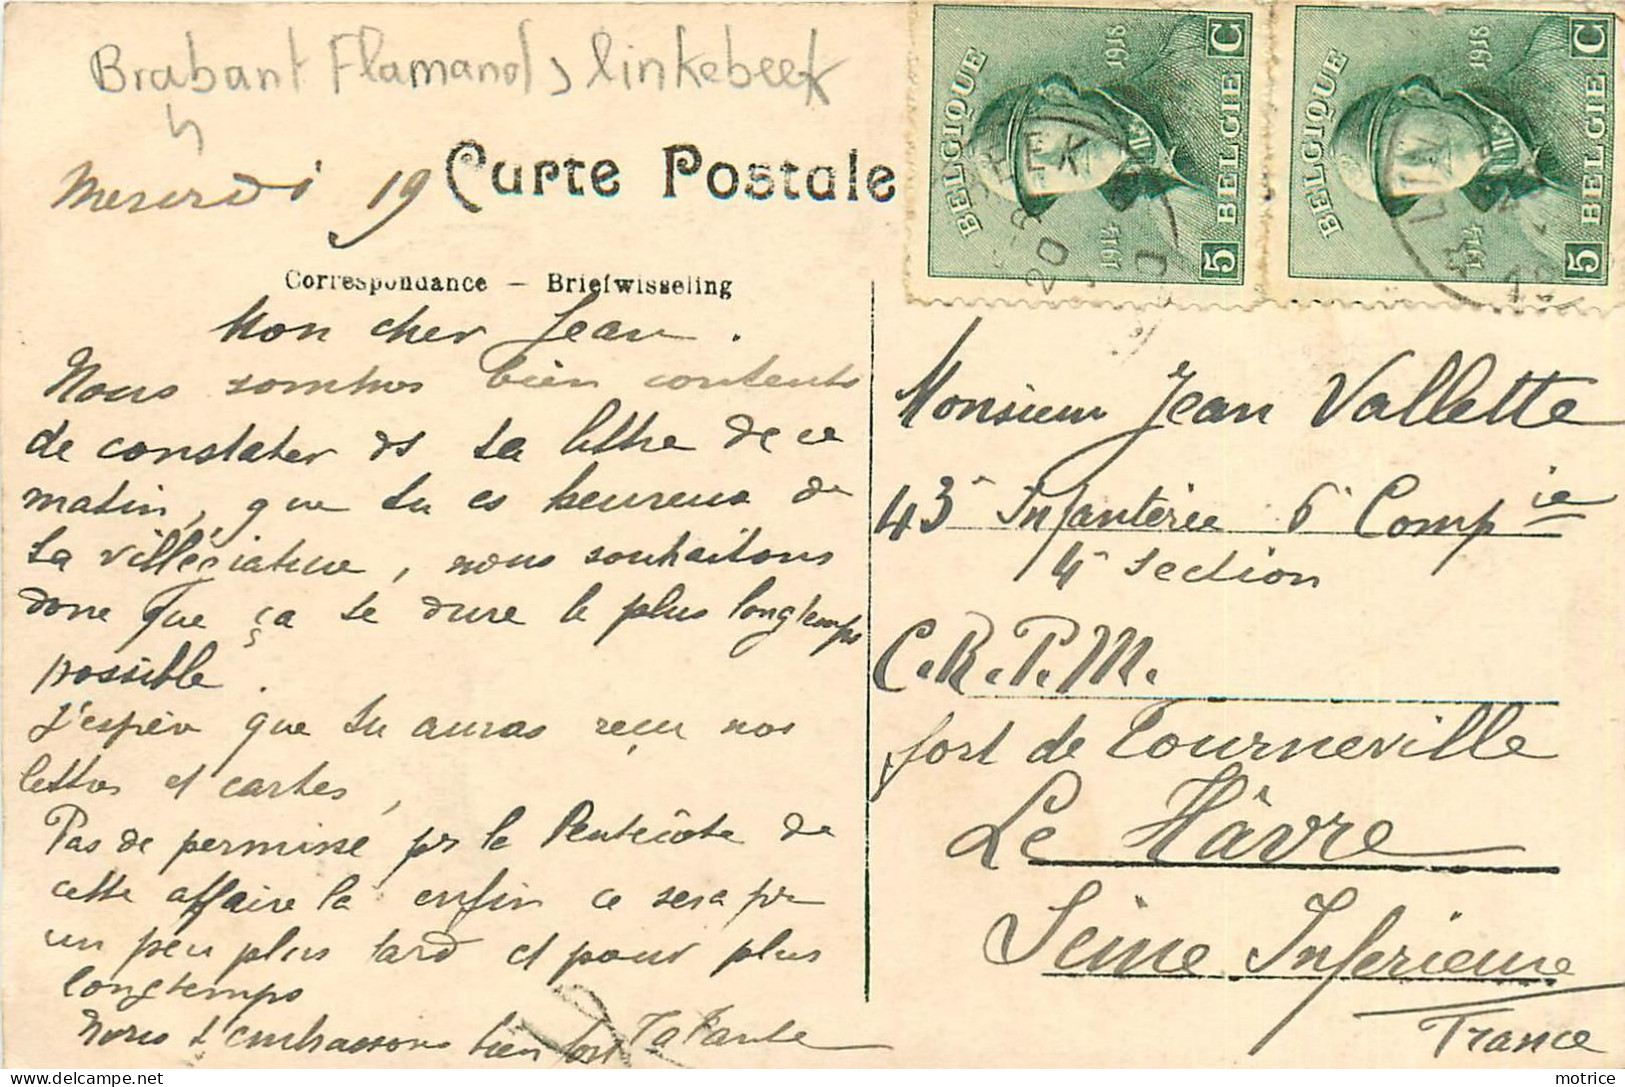 Brabant Flamand, linkebeek
BELGIQUE
1914 1918
5 BELGIE C
BELGIQUE
1914 1918
5 BELGIE C
Mercredi 19
Carte Postale
Correspondance – Briefwisseling
Mon cher Jean.
Nous sommes bien contents
de constater ds ta lettre de ce
matin, que tu es heureux de
ta villégiature, nous souhaitons
donc que ça te dure le plus longtemps
possible.
J'espère que tu auras reçu nos
lettres et cartes,
Pas de permisse pr le Pentecôte de
cette affaire là enfin ce sera pr
un peu plus tard et pour plus
longtemps
Nous t'embrassons bien fort
Ta Tante
Monsieur Jean Vallette
43e Infanterie 6e Compie
4e Section
C.R.P.M.
fort de Tourneville
Le Hâvre
Seine Inferieure
France
motrice